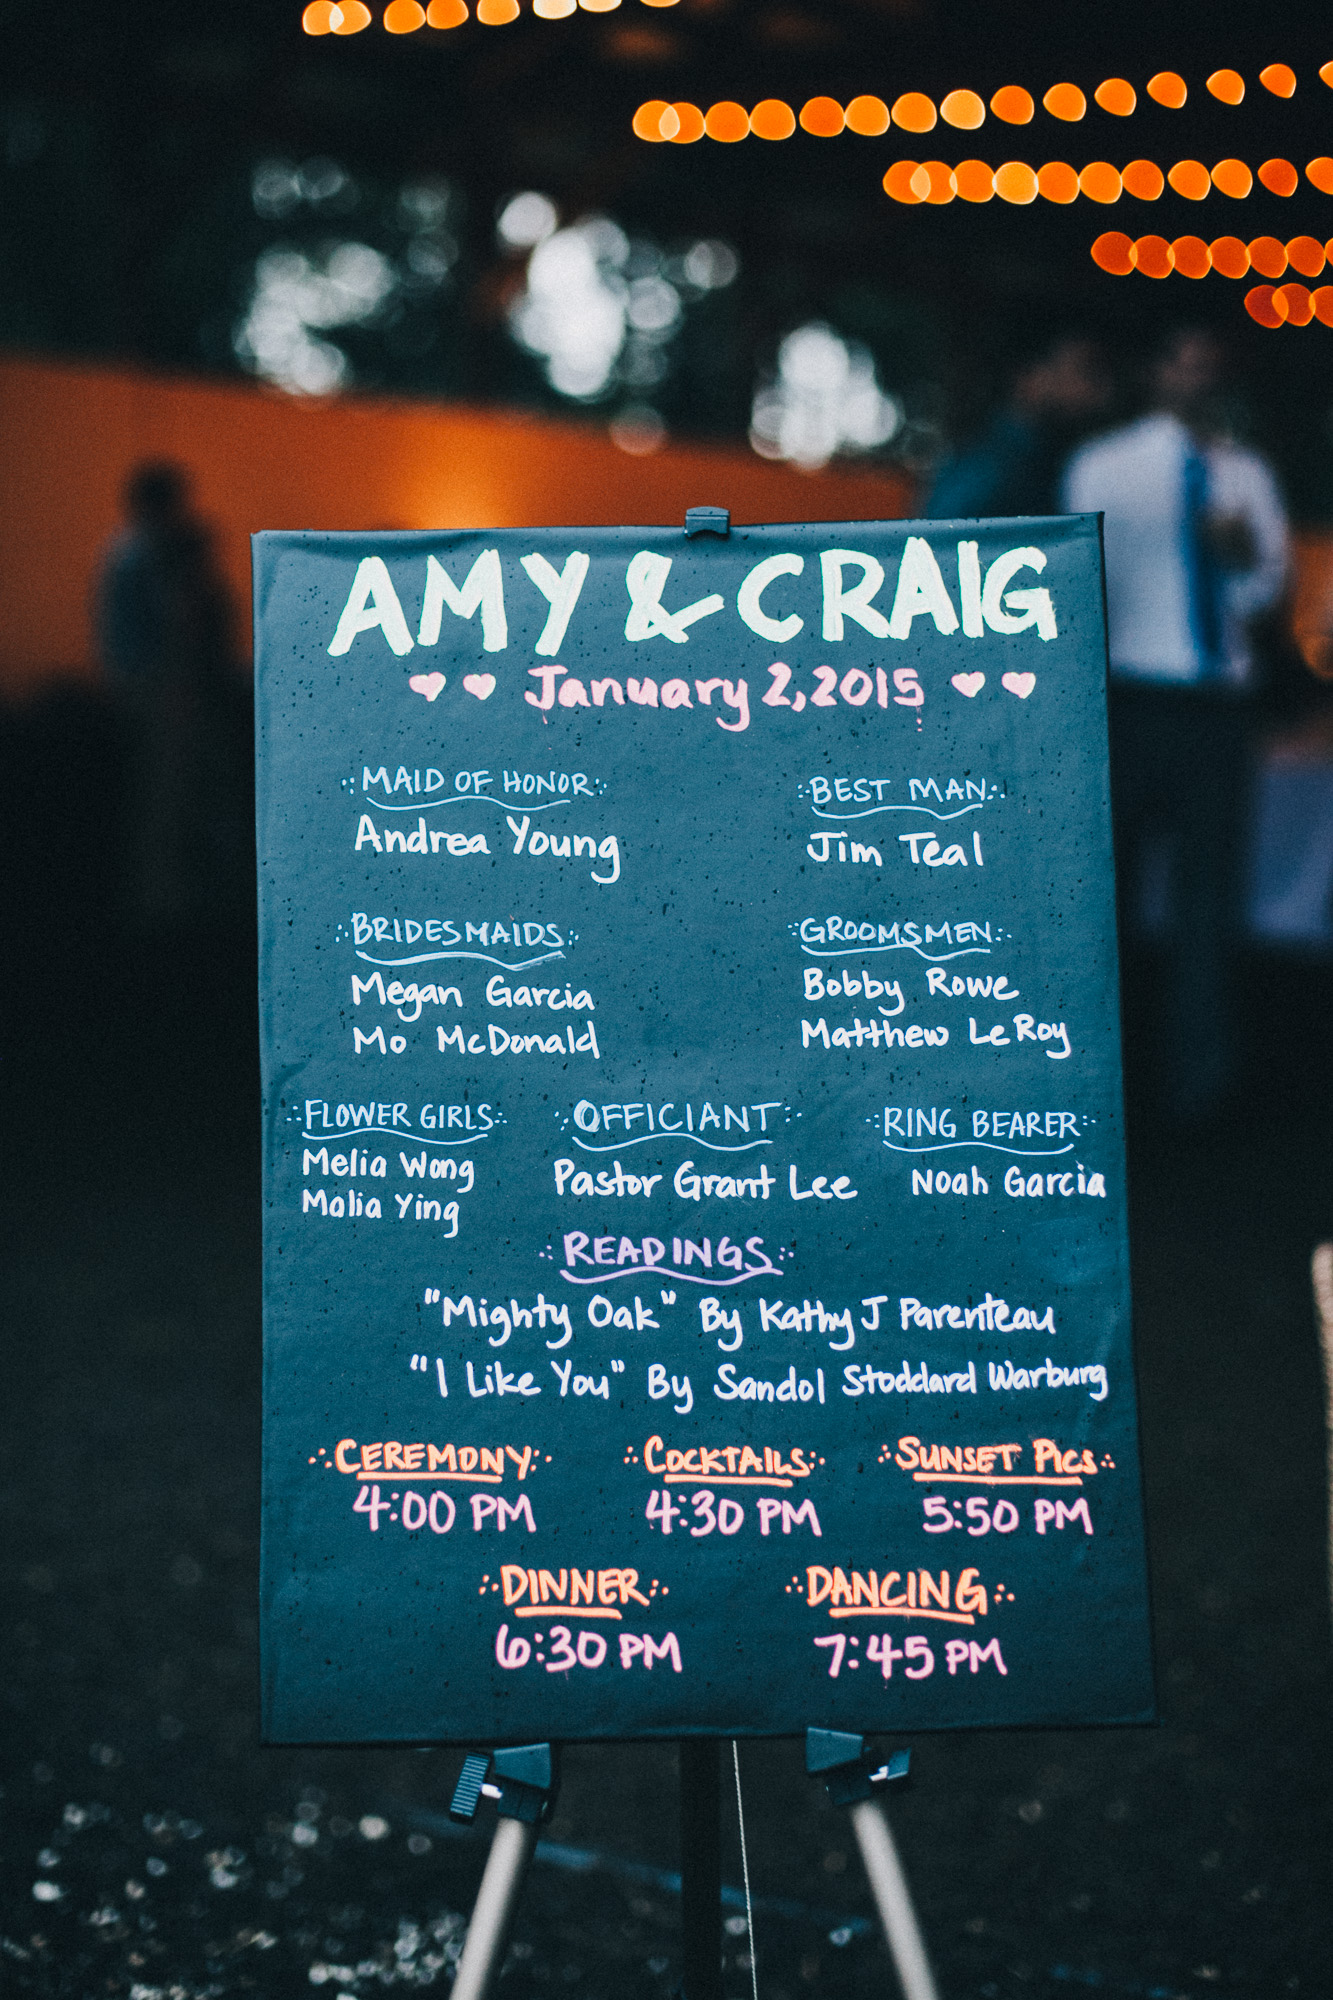 AMY & CRAIG
♥ ♥ January 2, 2015 ♥ ♥
MAID OF HONOR
Andrea Young
BEST MAN
Jim Teal
BRIDESMAIDS
Megan Garcia
Mo McDonald
GROOMSMEN
Bobby Rowe
Matthew LeRoy
FLOWER GIRLS
Melia Wong
Malia Ying
OFFICIANT
Pastor Grant Lee
RING BEARER
Noah Garcia
READINGS
"Mighty Oak" By Kathy J Parenteau
"I Like You" By Sandol Stoddard Warburg
CEREMONY
4:00 PM
COCKTAILS
4:30 PM
SUNSET PICS
5:50 PM
DINNER
6:30 PM
DANCING
7:45 PM